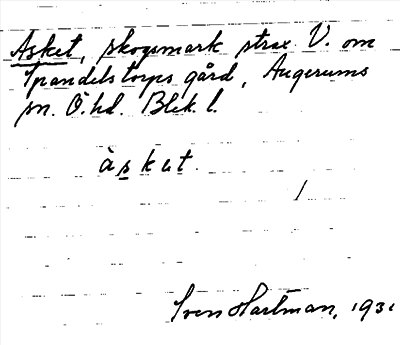 Asket, skogsmark strax V. om
Spandelstorps gård, Augerums
sn. Ö. hd. Blek. l.
àskət.
Sven Hartman, 1931